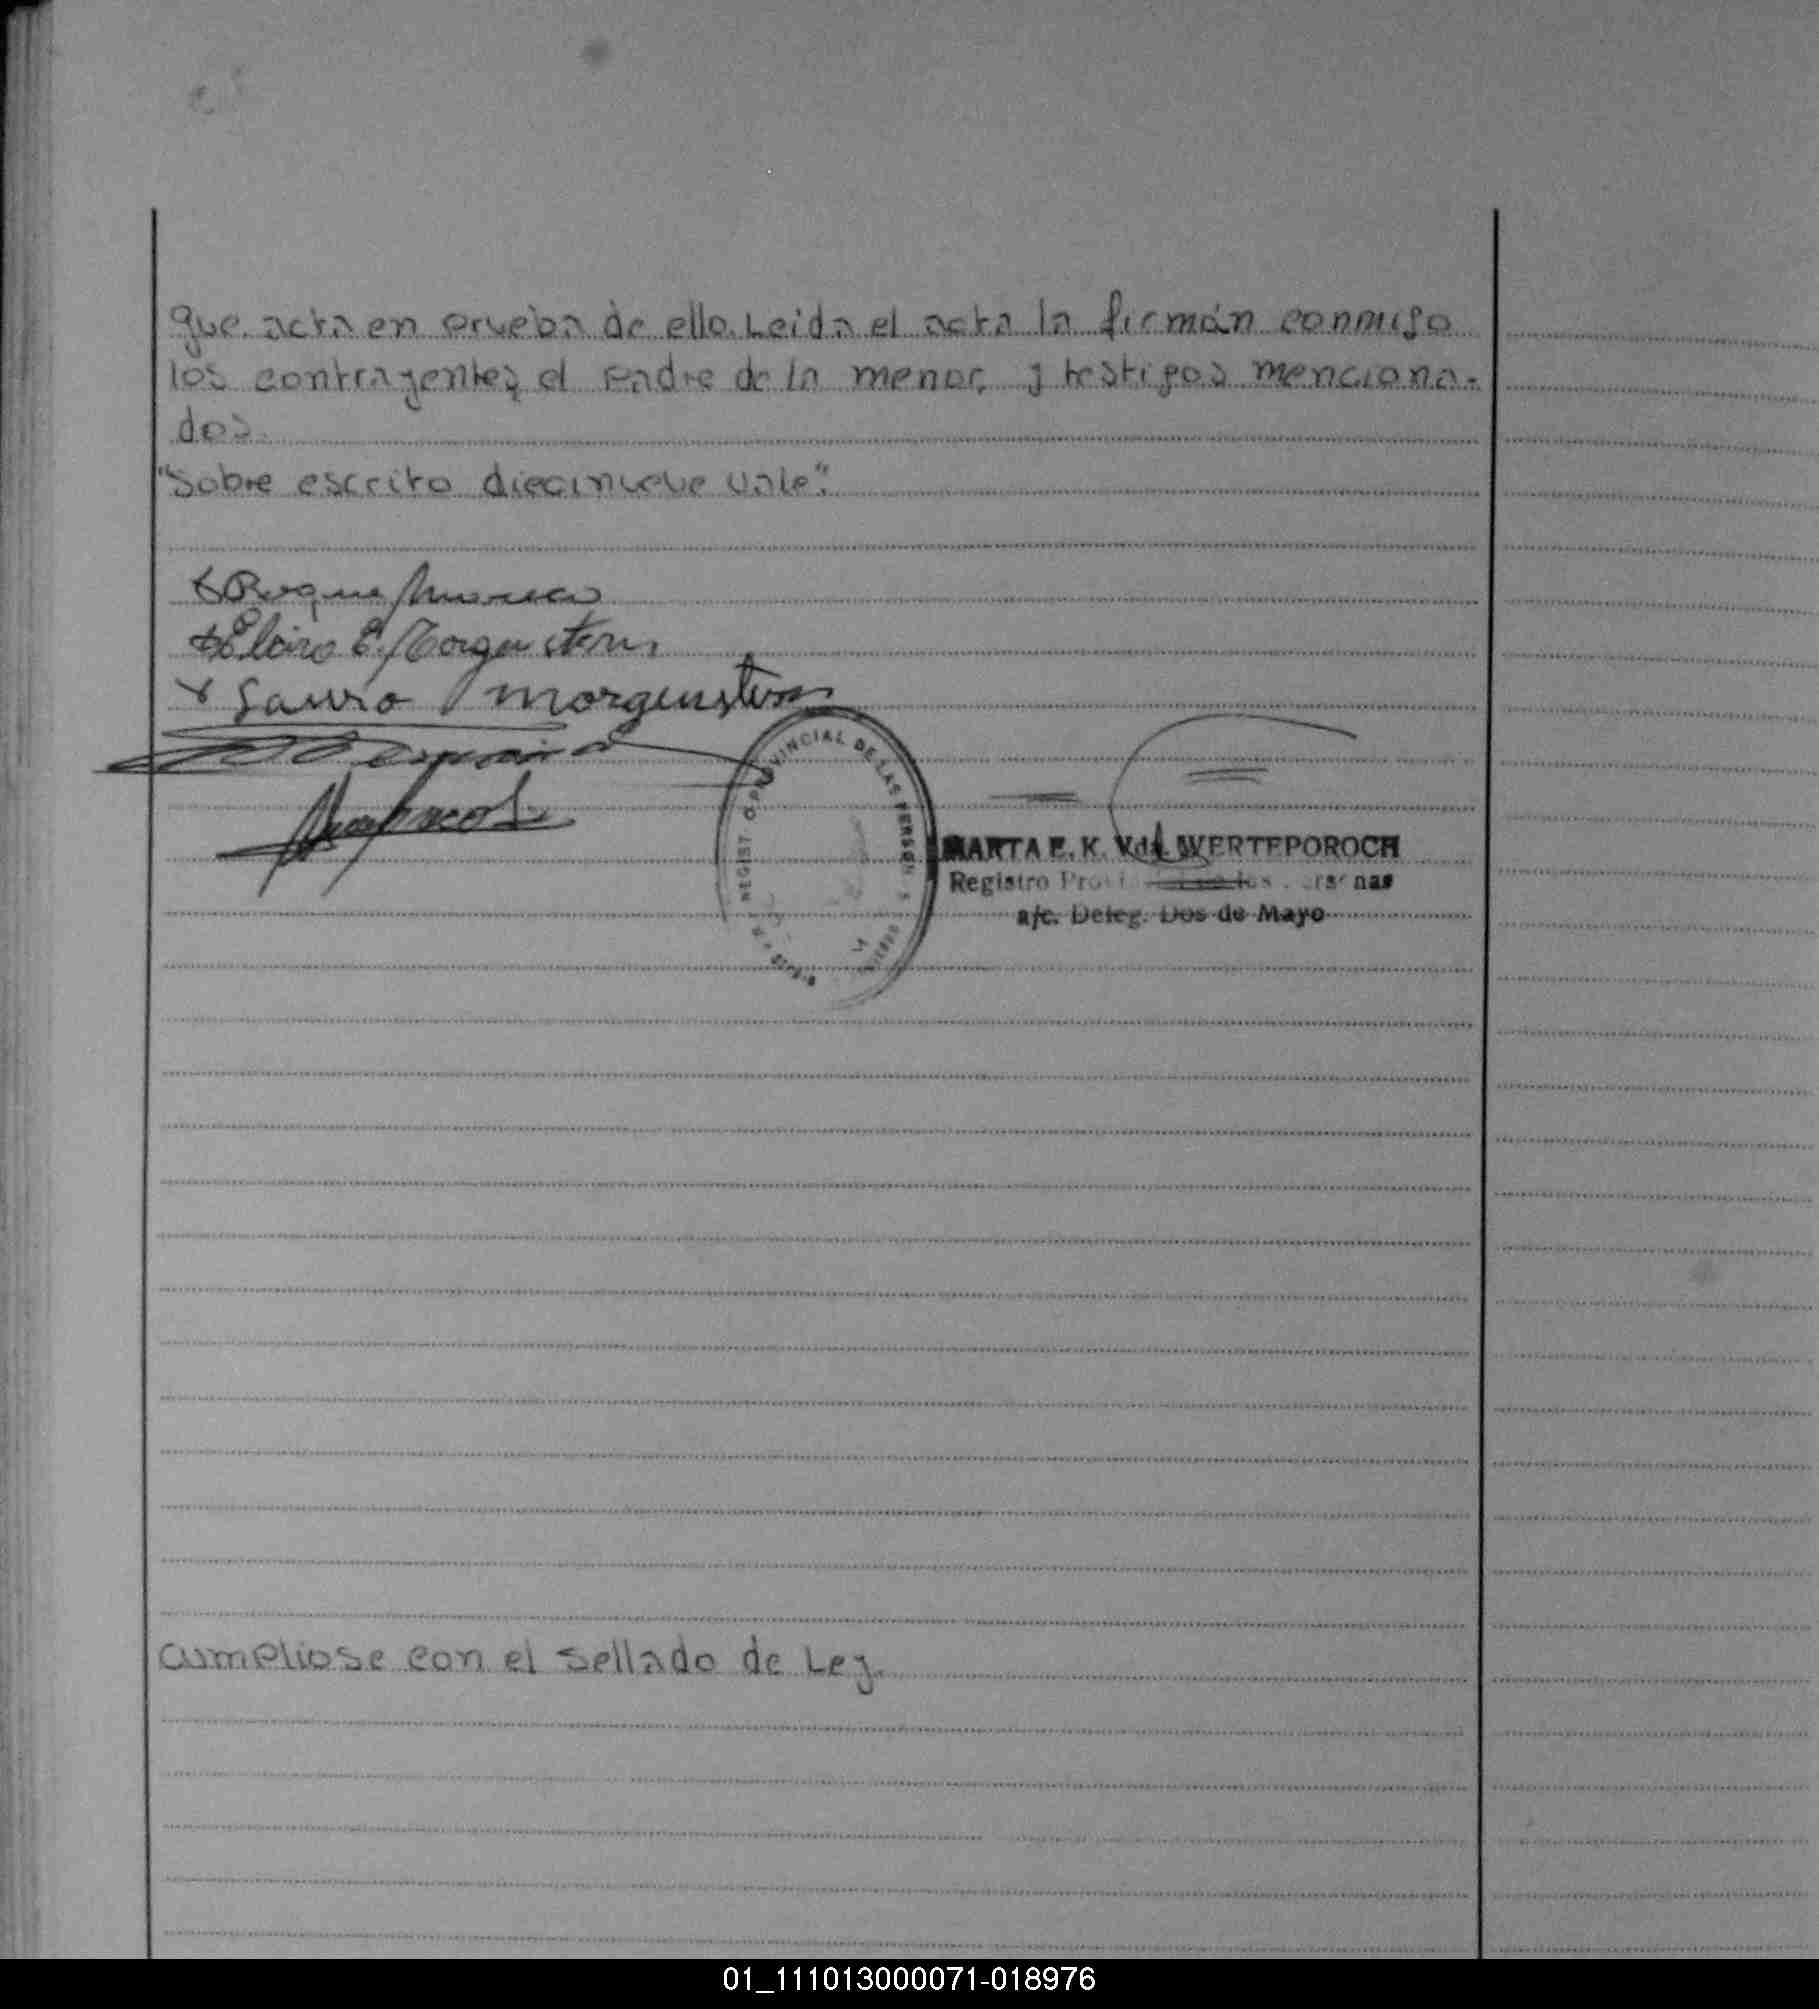 que acta en prueba de ello. Leida el acta la firmán conmigo
los contrayentes, el padre de la menor, y testigos menciona-
dos.
"Sobre escrito diecinueve vale".
Roque
Morgenstern
Lauro Morgenstern
REGISTRO PROVINCIAL DE LAS PERSON
MARTA E. K. Vda. WERTEPOROCH
Registro
a/c. Deleg. Dos de Mayo
Cumpliose con el sellado de Ley.
01_111013000071-018976